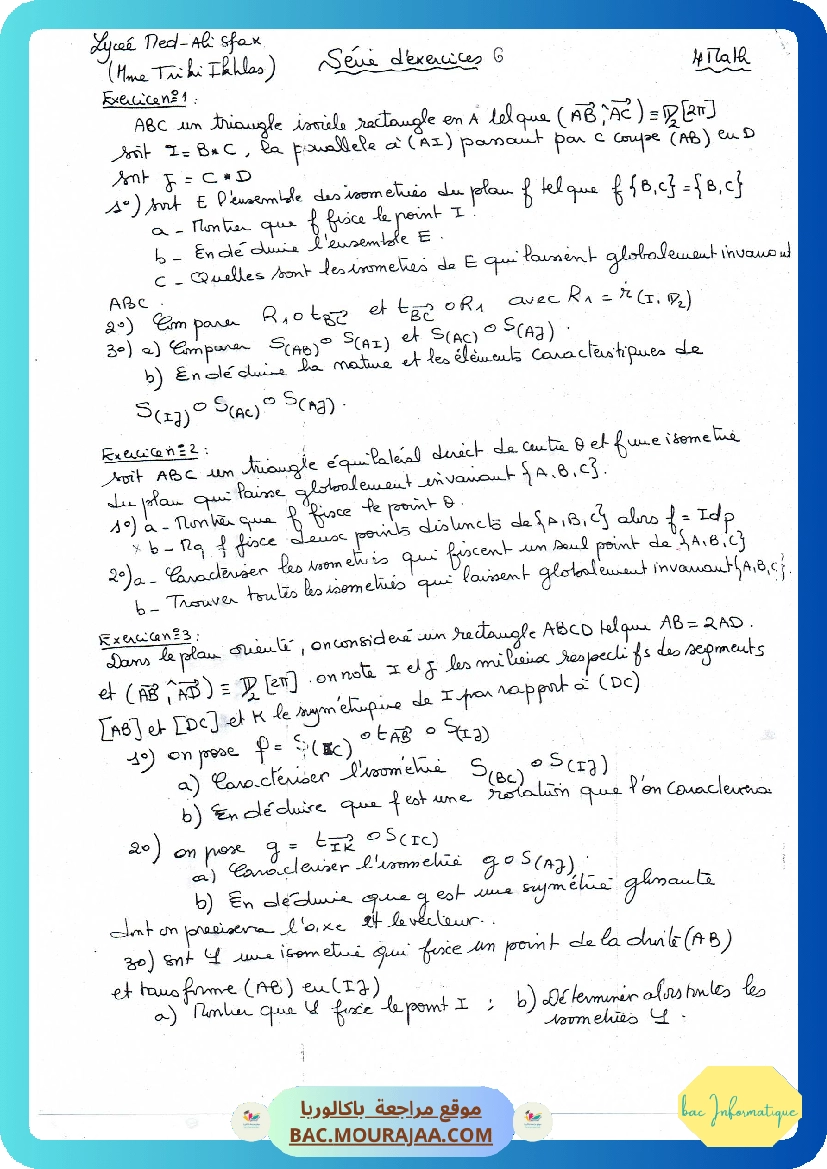 Lycée Med-Ali Sfax
(Mme Triki Ikhlas)
Série d'exercices 6
4 Math
Exercice n°1 :
ABC un triangle isocèle rectangle en A tel que (AB, AC) ≡ π/2 [2π]
soit I = B*C, la parallèle à (AI) passant par C coupe (AB) en D
soit J = C*D
1°) soit E l'ensemble des isometries du plan f tel que f{B,C} = {B,C}
a - Montrer que f fixe le point I.
b - En déduire l'ensemble E.
c - Quelles sont les isometries de E qui laissent globalement invariant
ABC.
2°) Comparer R₁ o t BC et t BC o R₁ avec R₁ = r(I, π/2)
3°) a) Comparer S(AB) o S(AI) et S(AC) o S(AJ).
b) En déduire la nature et les éléments caractéristiques de
S(IJ) o S(AC) o S(AJ).
Exercice n°2 :
soit ABC un triangle équilatéral direct de centre O et f une isometrie
du plan qui laisse globalement invariant {A,B,C}.
1°) a - Montrer que f fixe le point O.
b - Mq f fixe deux points distincts de {A,B,C} alors f = Idp
2°) a - Caractériser les isometries qui fixent un seul point de {A,B,C}
b - Trouver toutes les isometries qui laissent globalement invariant {A,B,C}.
Exercice n°3 :
Dans le plan orienté, on considère un rectangle ABCD tel que AB = 2AD.
et (AB, AD) ≡ π/2 [2π]. on note I et J les milieux respectifs des segments
[AB] et [DC] et K le symétrique de I par rapport à (DC)
1°) on pose f = S(BC) o t AB o S(IJ)
a) Caractériser l'isométrie S(BC) o S(IJ)
b) En déduire que f est une rotation que l'on caractérisera
2°) on pose g = t IK o S(IC)
a) Caractériser l'isometrie g o S(AJ).
b) En déduire que g est une symétrie glissante
dont on precisera l'axe et le vecteur..
3°) soit φ une isometrie qui fixe un point de la droite (AB)
et transforme (AB) en (IJ)
a) Montrer que φ fixe le point I ; b) Déterminer alors toutes les
isometries φ.
موقع مراجعة باكالوريا
BAC.MOURAJAA.COM
bac Informatique